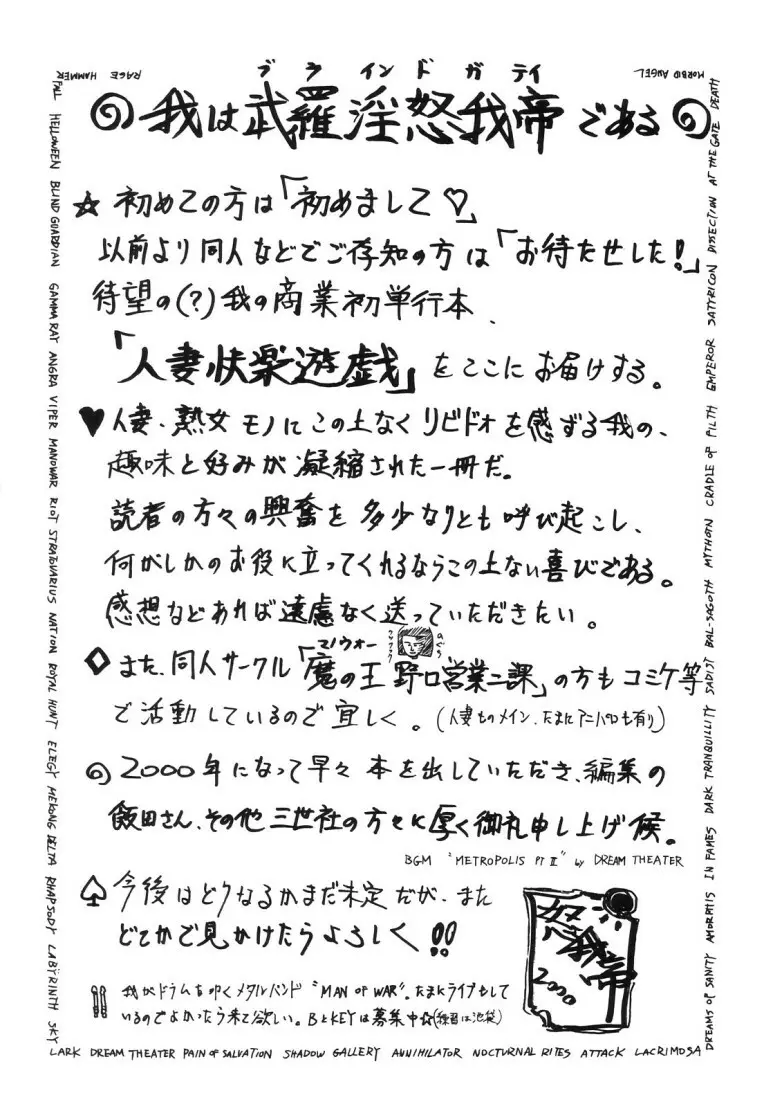 ブラインドガディ
我は武羅淫怒我帝である
☆ 初めての方は「初めまして♡」
以前より同人などでご存知の方は「お待たせした!」
待望の(?)我の商業初単行本、
「人妻快楽遊戯」をここにお届けする。
♥人妻、熟女モノにこの上なくリビドォを感ずる我の、
趣味と好みが凝縮された一冊だ。
読者の方々の興奮を多少なりとも呼び起こし、
何がしかのお役に立ってくれるならこの上ない喜びである。
感想などあれば遠慮なく送っていただきたい。
マノウォー
◇また、同人サークル「魔の王 野口営業二課」の方もコミケ等
で活動しているので宜しく。(人妻ものメイン、たまにアニパロも有り)
2000年になって早々本を出していただき、編集の
飯田さん、その他三世社の方々に厚く御礼申し上げ候。
BGM "METROPOLIS PT II" by DREAM THEATER
♤今後はどうなるかまだ未定だが、また
どこかで見かけたらよろしく!!
我がドラムを叩くメタルバンド "MAN OF WAR"。たまにライブもして
いるのでよかったら来て欲しい。BとKEYは募集中☆(練習は池袋)
我帝
2000
RAGE HAMMER
FALL HELLOWEEN BLIND GUARDIAN GAMMA RAY ANGRA VIPER MANOWAR RIOT STRATOVARIUS NATION ROYAL HUNT ELEGY MEKONG DELTA RHAPSODY LABŸRINTH SKY
LARK DREAM THEATER PAIN OF SALVATION SHADOW GALLERY ANNIHILATOR NOCTURNAL RITES ATTACK LACRIMOSA
DREAMS OF SANITY AMORPHIS IN FAMES DARK TRANQUILLITY SADIST BAL-SAGOTH MYTHOTN CRADLE OF FILTH EMPEROR SATYRICON DISSECTION AT THE GATE DEATH
MORBID ANGEL